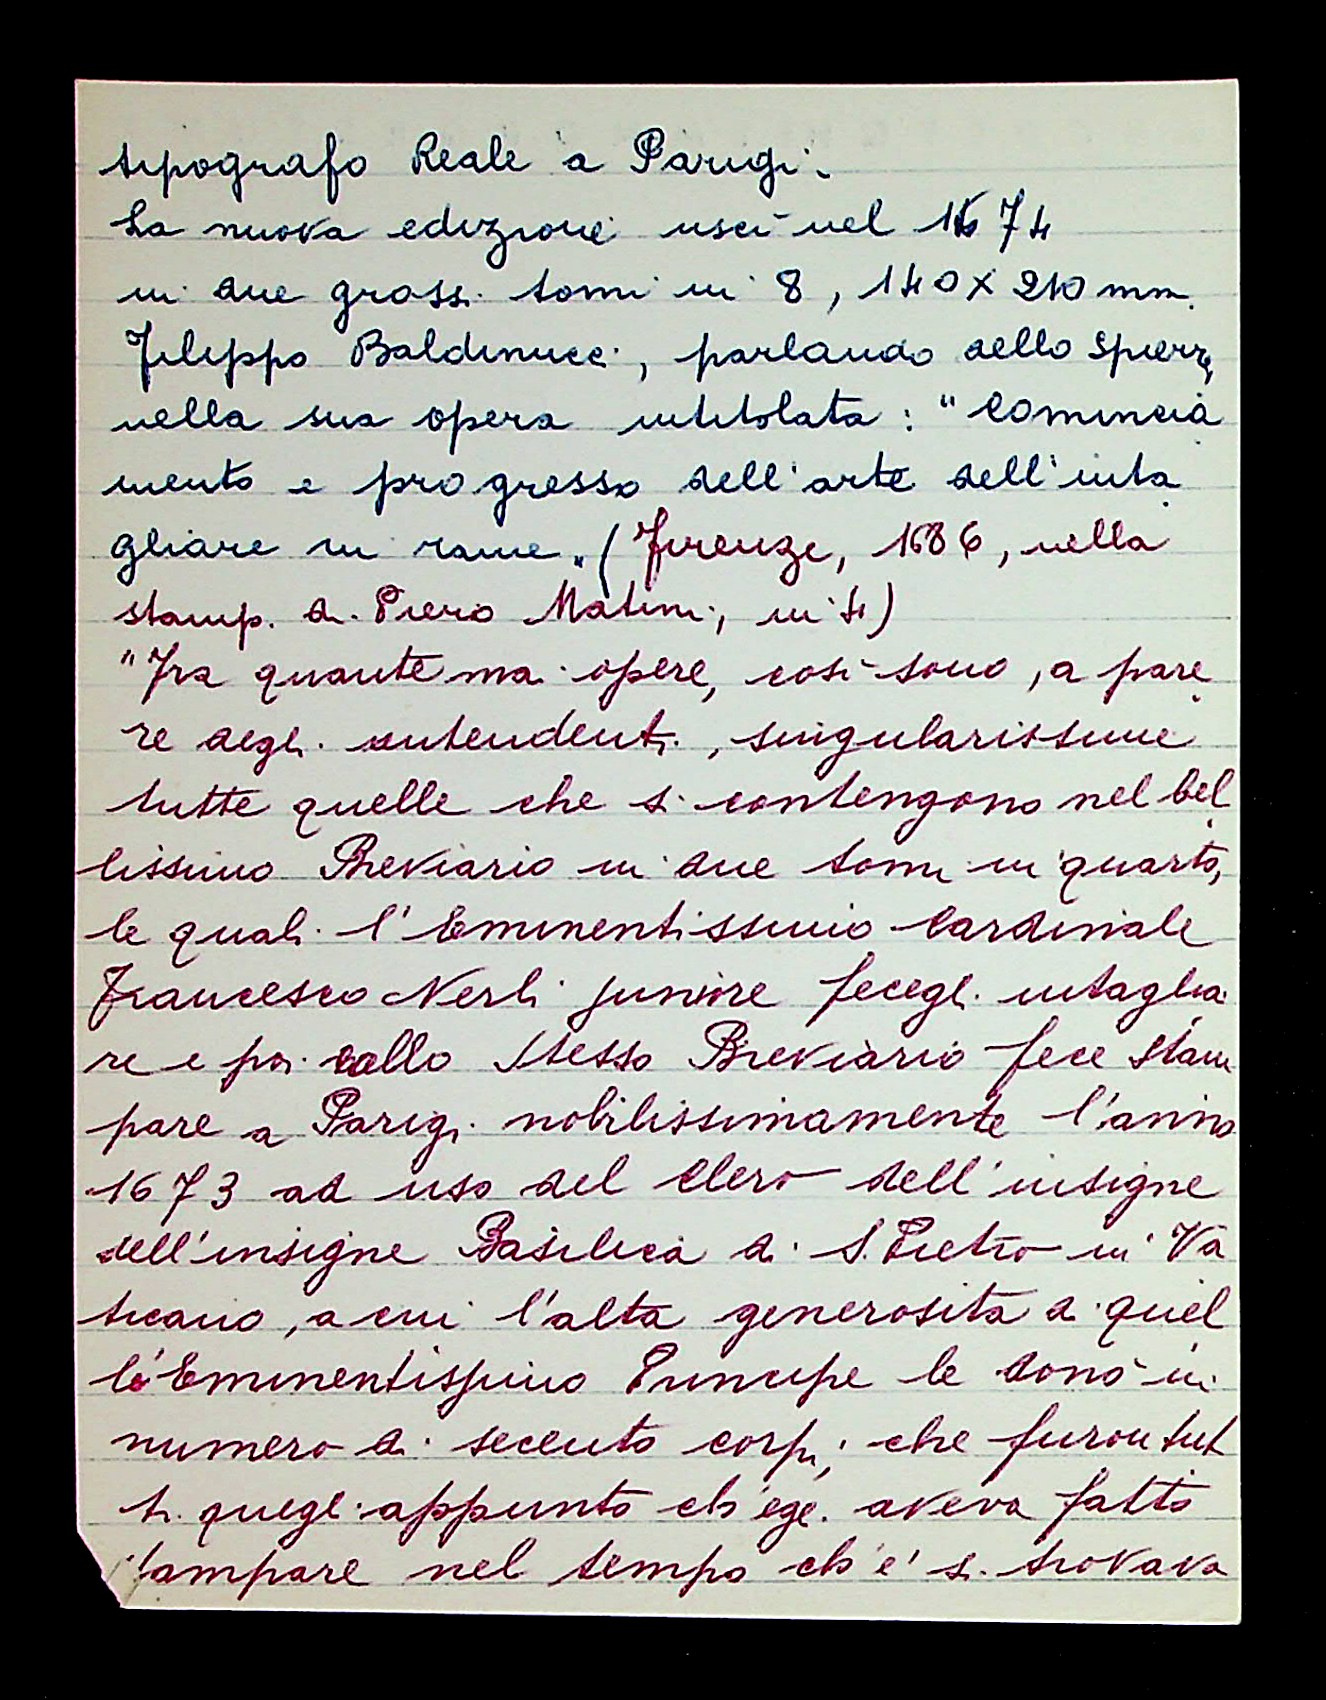 tipografo Reale a Parigi.
La nuova edizione uscì nel 1674
in due grossi tomi in 8, 140 X 210 mm.
Filippo Baldinucci, parlando dello Spierre,
nella sua opera intitolata: "Comincia
mento e progresso dell'arte dell'inta
gliare in rame" (Firenze, 1686, nella
stamp. di Piero Matini, in 4)
"Fra quante mai opere, così sono, a pare
re degli intendenti, singularissime
tutte quelle che si contengono nel bel
lissimo Breviario in due tomi in quarto,
le quali l'Eminentissimo Cardinale
Francesco Nerli juniore fecegli intaglia
re e poi collo stesso Breviario fece stam
pare a Parigi nobilissimamente l'anno
1673 ad uso del Clero dell'insigne
dell'insigne Basilica di S. Pietro in Va
ticano, a cui l'alta generosità di quel
l'Eminentissimo Principe le donò in
numero di secento corpi, che furon tut
ti quegli appunto ch'egli aveva fatto
stampare nel tempo ch'e' si trovava